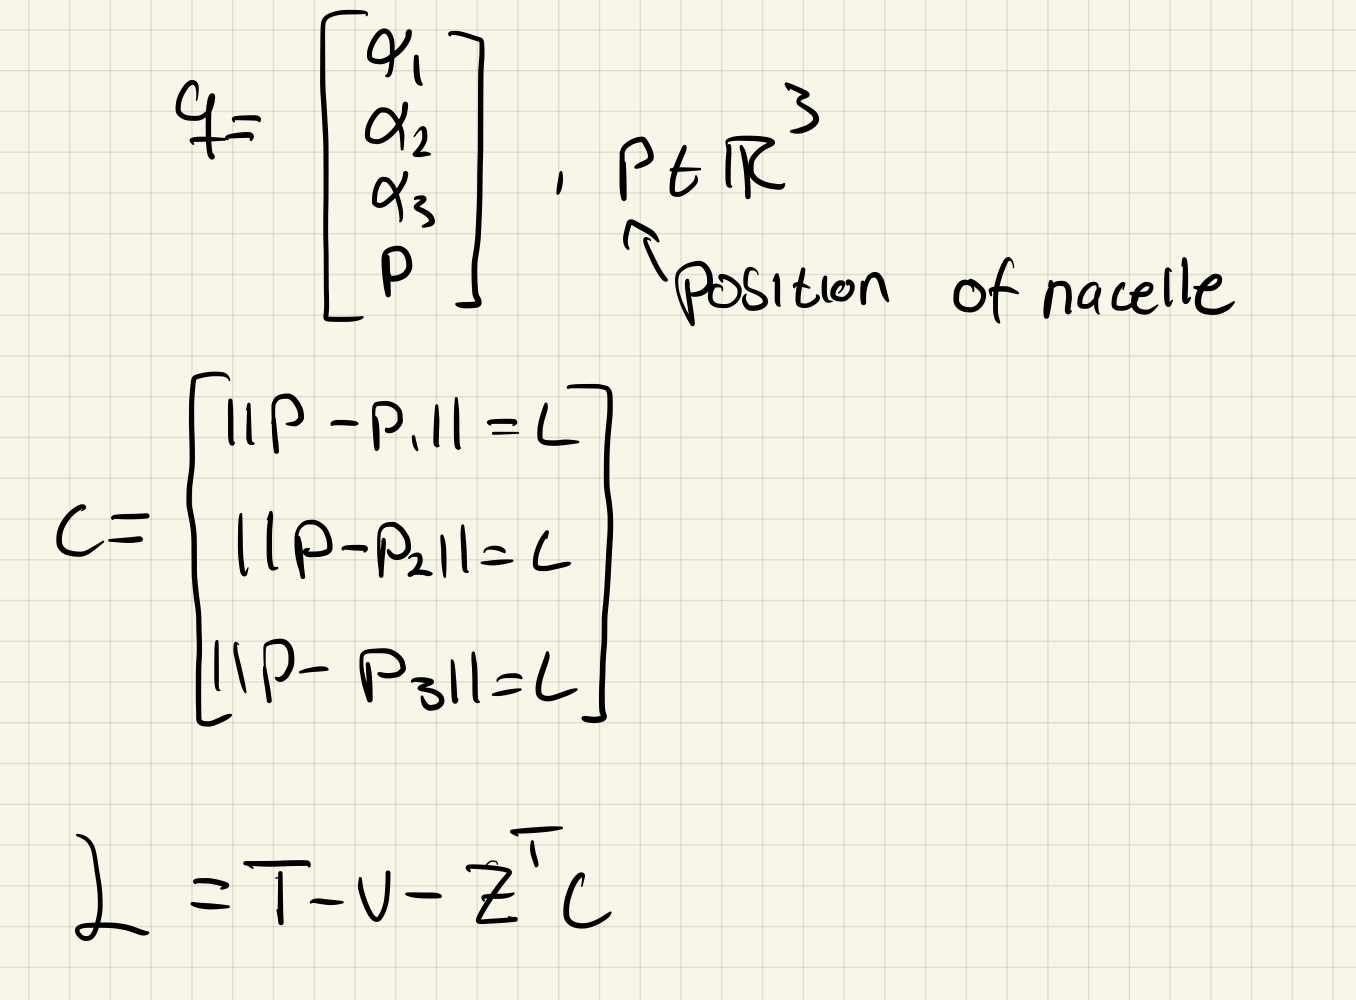 q = [α₁ α₂ α₃ p] , p ∈ ℝ³
position of nacelle
c = [||p - p₁|| = L
||p - p₂|| = L
||p - p₃|| = L]
L = T - U - Zᵀ C